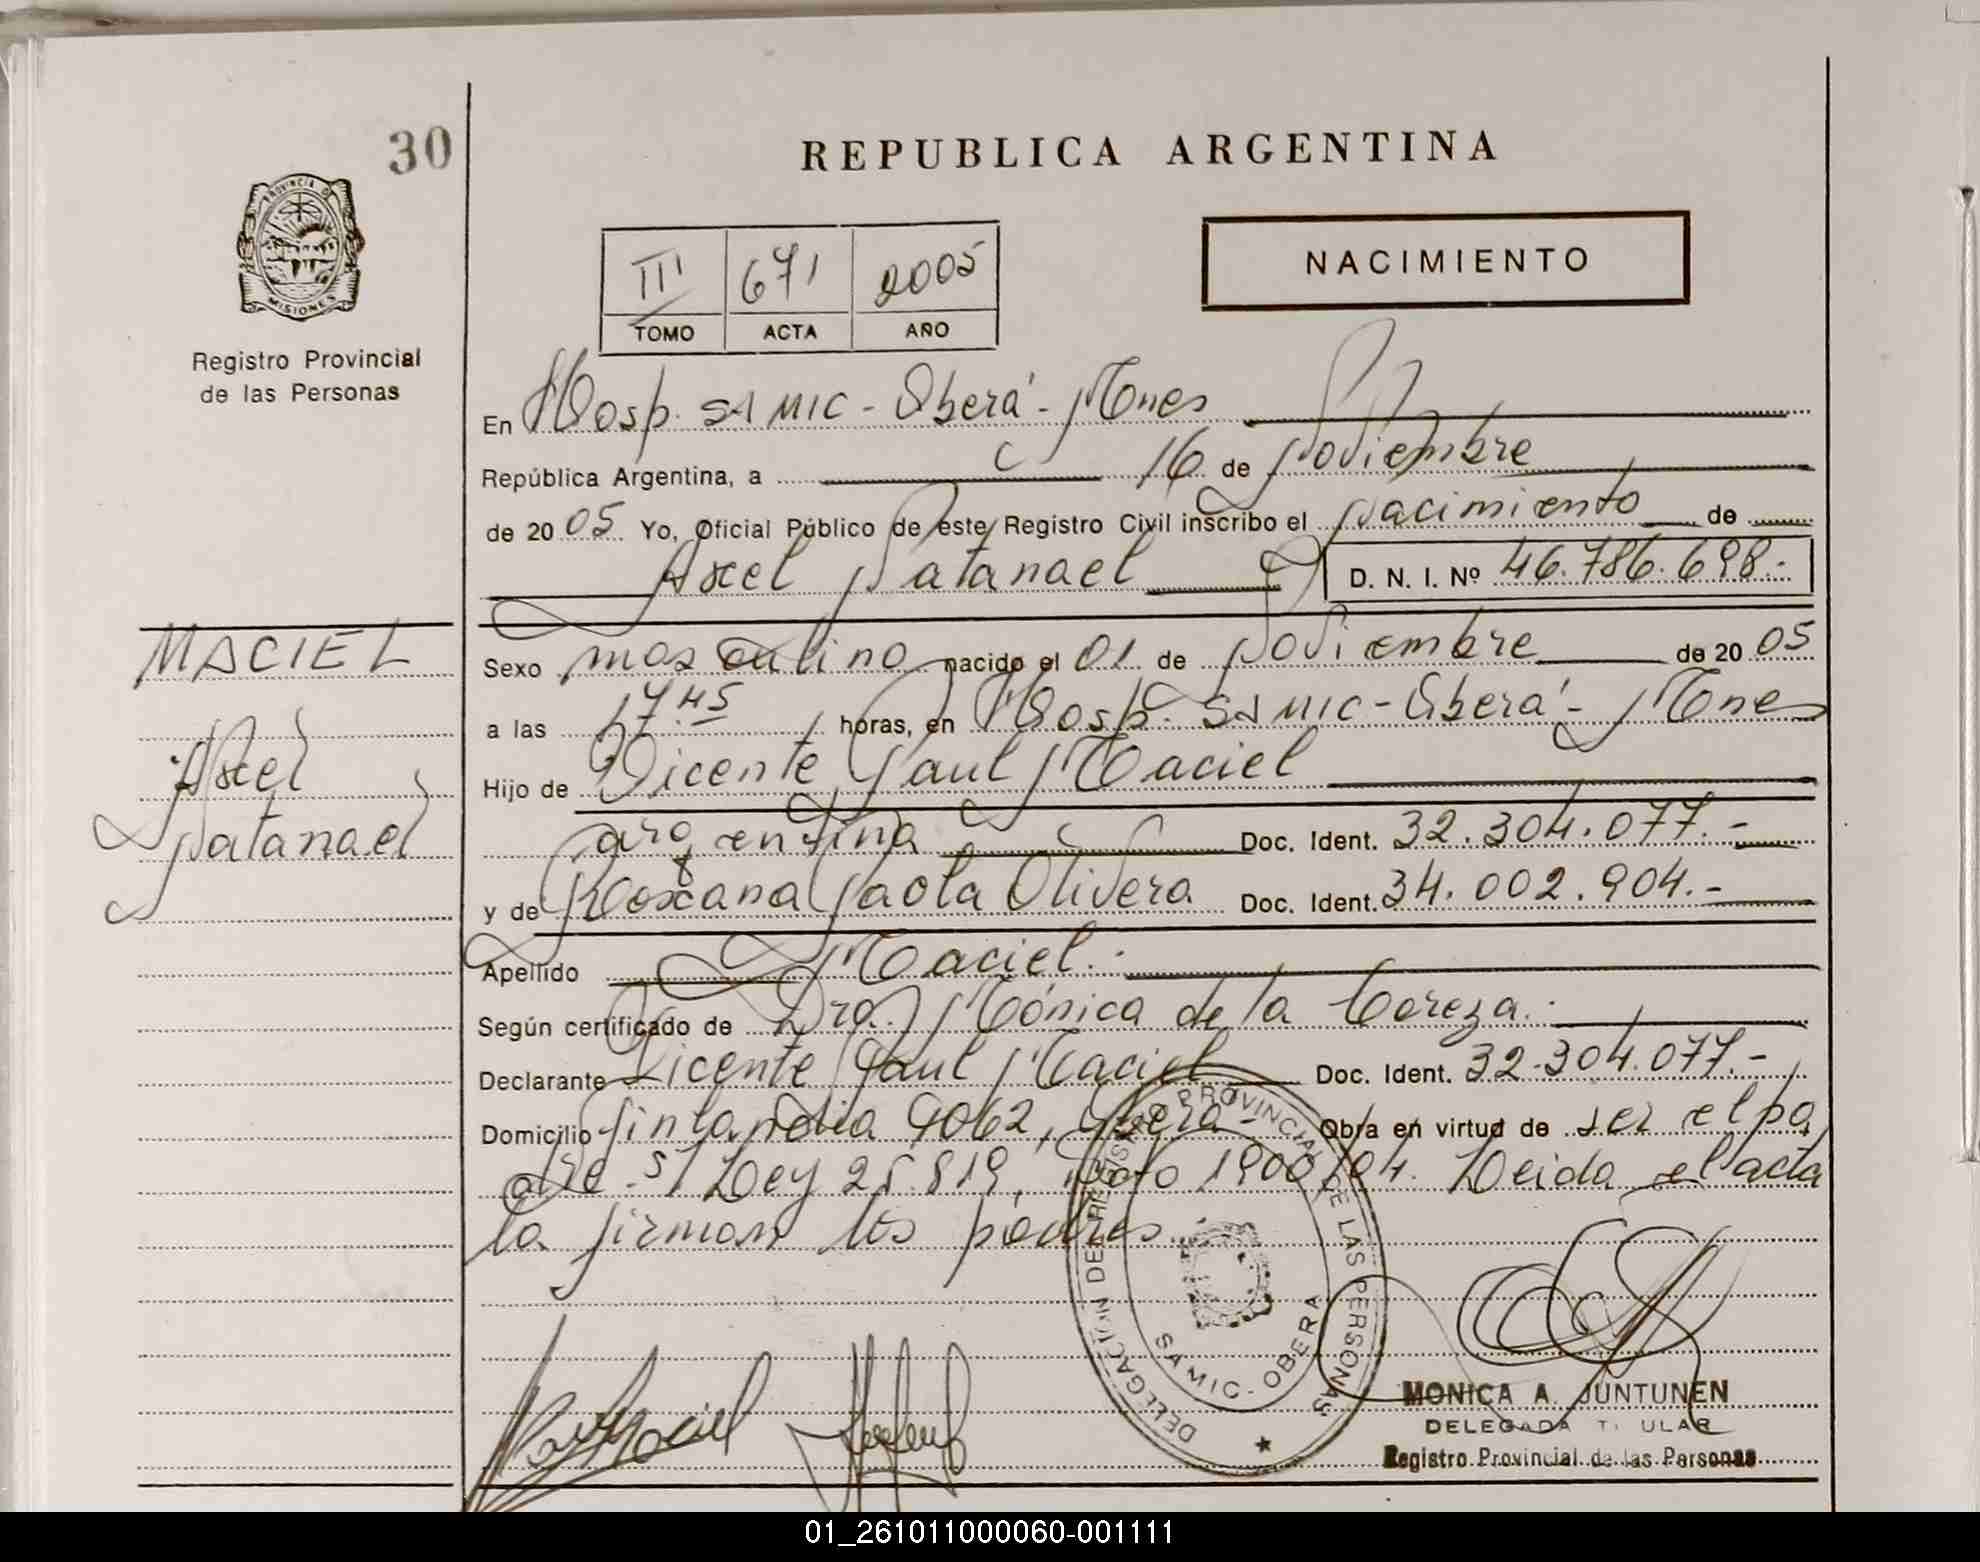 30
REPUBLICA ARGENTINA
PROVINCIA D
MISIONES
Registro Provincial
de las Personas
III 671 2005
TOMO ACTA AÑO
NACIMIENTO
En Hosp. SAMIC - Oberá - Mnes
República Argentina, a 16 de Noviembre
de 20 05 Yo, Oficial Público de este Registro Civil inscribo el Nacimiento de
Axel Natanael D. N. I. Nº 46.786.698.-
MACIEL
Axel
Natanael
Sexo masculino nacido el 01 de Noviembre de 20 05
a las 17.45 horas, en Hosp. SAMIC - Oberá - Mnes
Hijo de Vicente Paul Maciel
argentina Doc. Ident. 32.304.077.-
y de Roxana Paola Olivera Doc. Ident. 34.002.904.-
Apellido Maciel.
Según certificado de Dra. Mónica de la
Declarante Vicente Paul Maciel Doc. Ident. 32.304.077.-
Domicilio Finlandia 4062, Oberá - Obra en virtud de ser el pa
dre - s/ Ley 25.819, Dto 1900/04. Leida el acta
la firman los padres
DELEGACION DEL REGISTRO PROVINCIAL DE LAS PERSONAS
SAMIC - OBERA
MONICA A. JUNTUNEN
DELEGADA TITULAR
Registro Provincial de las Personas
01_261011000060-001111